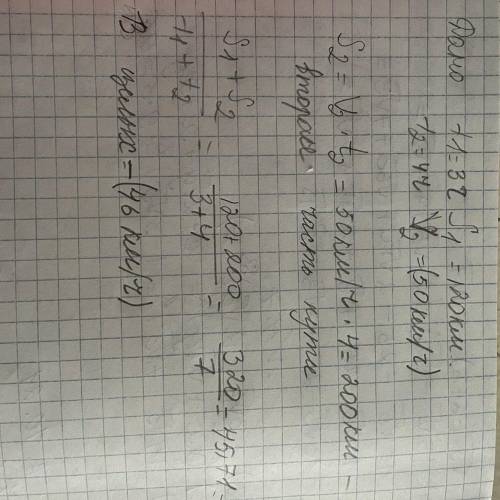 Дано t1=3ч S1 = 120км.
t2=4ч V2 =(50км/ч)
S2 = V2 · t2 = 50км/ч · 4 = 200км –
вторая часть пути
S1 + S2 / t1 + t2 = 120+200 / 3+4 = 320 / 7 = 45,71 =
В целых – (46 км/ч)